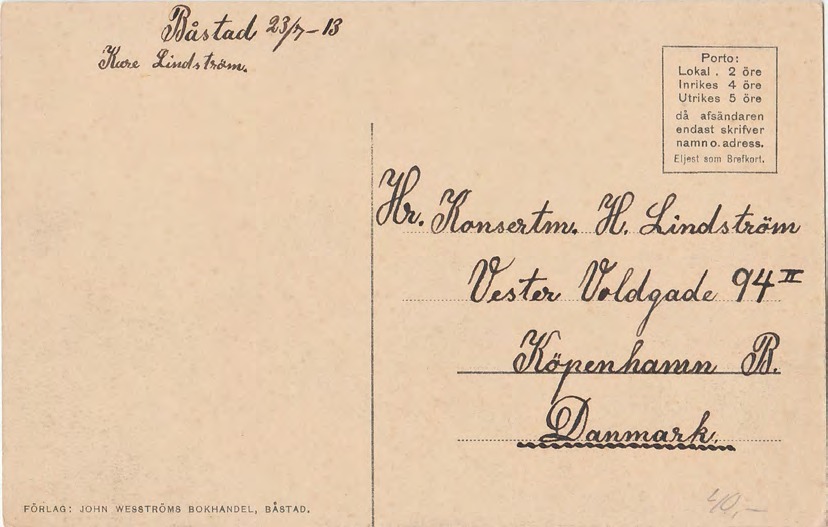 Båstad 23/7-13
Kure Lindström.
Porto:
Lokal . 2 öre
Inrikes 4 öre
Utrikes 5 öre
då afsändaren
endast skrifver
namn o. adress.
Eljest som Brefkort.
Hr. Konsertm. H. Lindström
Vester Voldgade 94 II
Köpenhamn B.
Danmark.
FÖRLAG: JOHN WESSTRÖMS BOKHANDEL, BÅSTAD.
40,-